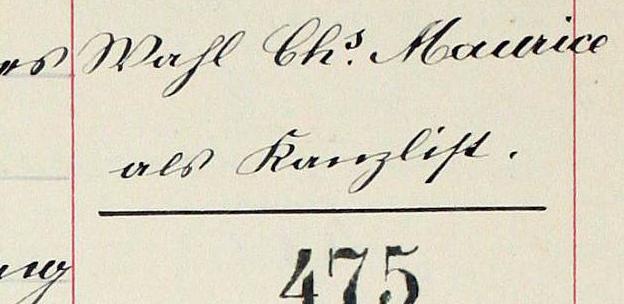 es Wahl Chs. Maurice
als Kanzlist.
ng
475